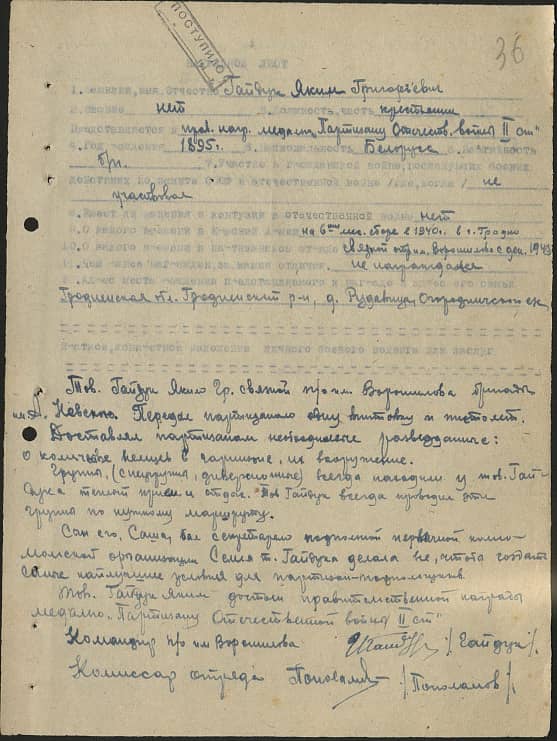 ПОСТУПИЛО
36
НАГРАДНОЙ ЛИСТ
1. Фамилия, имя, Отчество Гайдук Яким Григорьевич
2. Звание нет 3. Должность, часть крестьянин
Представляется к прав. нагр. медали "Партизану Отечеств. войны II ст"
4. Год рождения 1895г. 5. Национальность Белорус 6. Партийность
б/п. 7. Участие в гражданской войне, последующих боевых
действиях по защите СССР и отечественной войне /где, когда/ не
участвовал
8. Имеет ли ранения и контузии в отечественной войне нет
9. С какого времени в Красной Армии на 6ти мес. сборе в 1940г. в г. Гродно
10. С какого времени в партизанском отряде связной отр. им. Ворошилова с дек. 1943г
11. Чем ранее награжден, за какие отличия не награждался
Гродненская обл. Гродненский р-н, д. Рудавица, Огородничского с/с
Краткое, конкретное изложение личного боевого подвига или заслуг
Тов. Гайдук Яким Гр. связной п/о им. Ворошилова бригады
им. А. Невского. Передал партизанам одну винтовку и пистолет.
Доставлял партизанам необходимые разведданные:
о количестве немцев в гарнизоне, их вооружение.
Группы, (спецгруппы, диверсионные) всегда находили у тов. Гай-
дука теплый прием и отдых. Тов Гайдук всегда проводил эти
группы по нужному маршруту.
Сын его, Саша, был секретарем подпольной первичной комсо-
мольской организации Семья т. Гайдука делала все, чтоб создать
самые наилучшие условия для партизан-подпольщиков.
Тов. Гайдук Яким достоин правительственной награды
медалью "Партизану Отечественной войны II ст"
Командир п/о им Ворошилова /Гайдук/.
Комиссар отряда /Пополамов/.